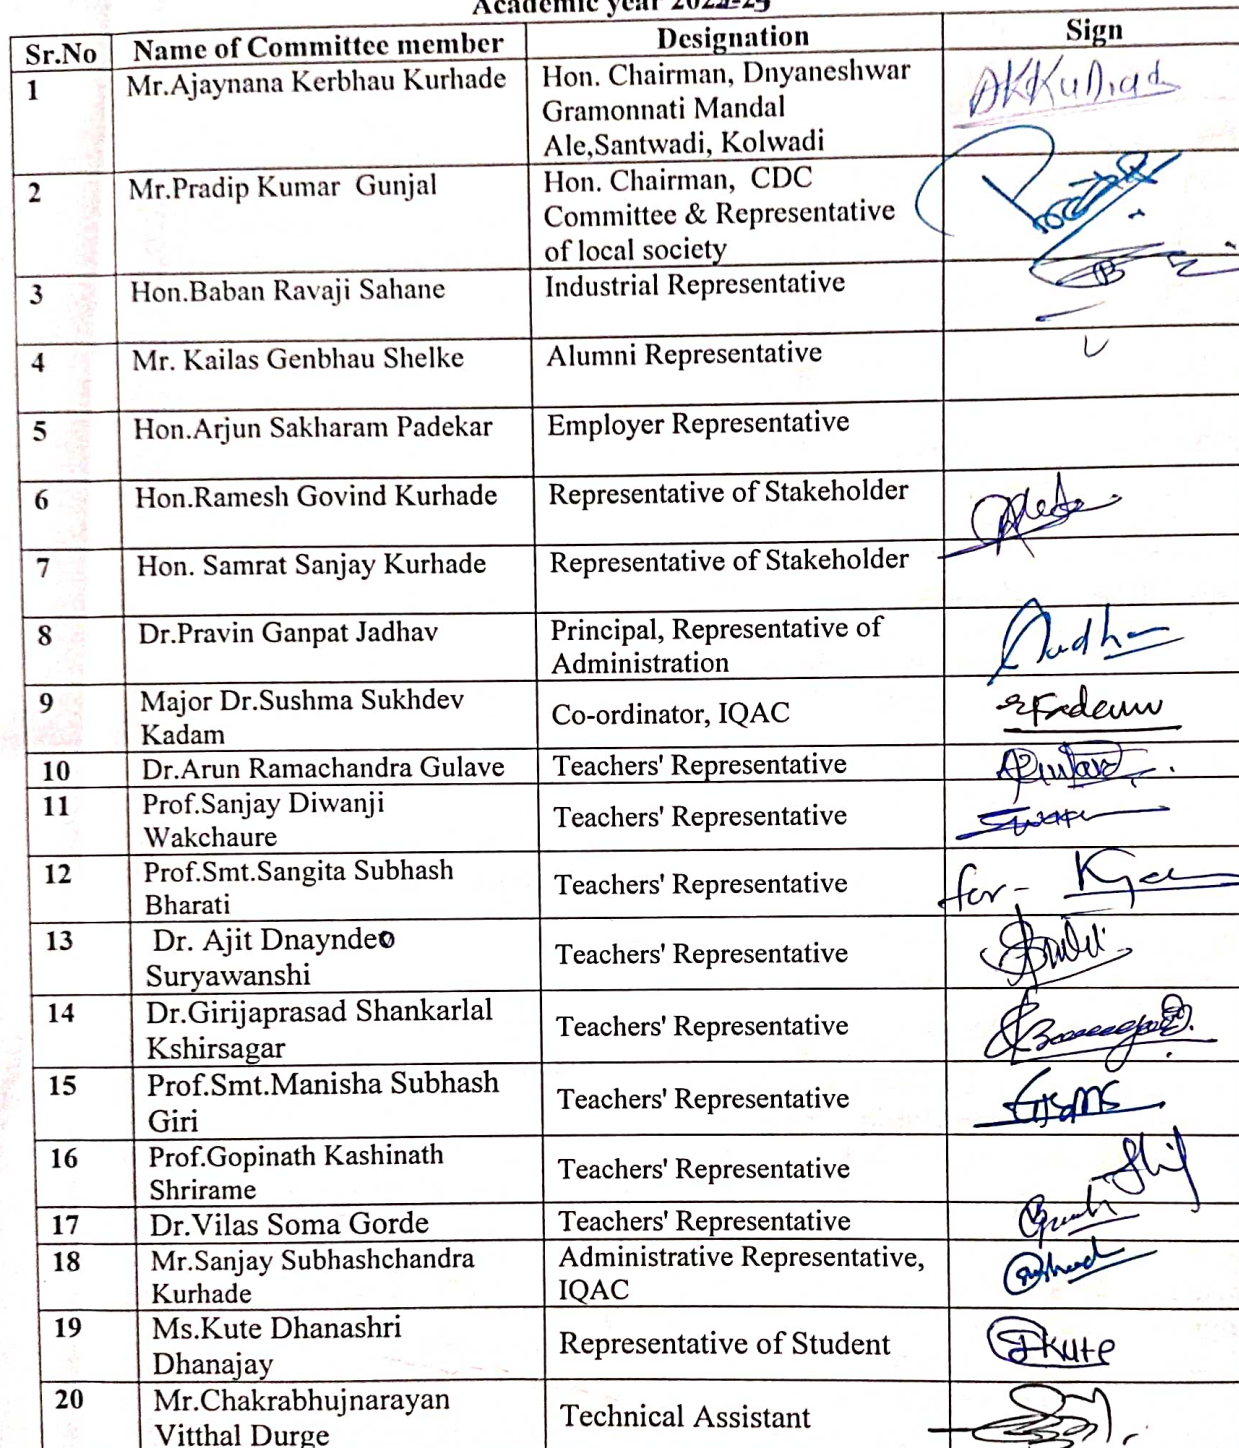 Academic year 2022-23
Sr.No Name of Committee member Designation Sign
1 Mr.Ajaynana Kerbhau Kurhade Hon. Chairman, Dnyaneshwar
Gramonnati Mandal
Ale,Santwadi, Kolwadi
2 Mr.Pradip Kumar Gunjal Hon. Chairman, CDC
Committee & Representative
of local society
3 Hon.Baban Ravaji Sahane Industrial Representative
4 Mr. Kailas Genbhau Shelke Alumni Representative
5 Hon.Arjun Sakharam Padekar Employer Representative
6 Hon.Ramesh Govind Kurhade Representative of Stakeholder
7 Hon. Samrat Sanjay Kurhade Representative of Stakeholder
8 Dr.Pravin Ganpat Jadhav Principal, Representative of
Administration
9 Major Dr.Sushma Sukhdev
Kadam Co-ordinator, IQAC
10 Dr.Arun Ramachandra Gulave Teachers' Representative
11 Prof.Sanjay Diwanji
Wakchaure Teachers' Representative
12 Prof.Smt.Sangita Subhash
Bharati Teachers' Representative for-
13 Dr. Ajit Dnayndeo
Suryawanshi Teachers' Representative
14 Dr.Girijaprasad Shankarlal
Kshirsagar Teachers' Representative
15 Prof.Smt.Manisha Subhash
Giri Teachers' Representative
16 Prof.Gopinath Kashinath
Shrirame Teachers' Representative
17 Dr.Vilas Soma Gorde Teachers' Representative
18 Mr.Sanjay Subhashchandra Administrative Representative,
Kurhade IQAC
19 Ms.Kute Dhanashri
Dhanajay Representative of Student
20 Mr.Chakrabhujnarayan
Vitthal Durge Technical Assistant